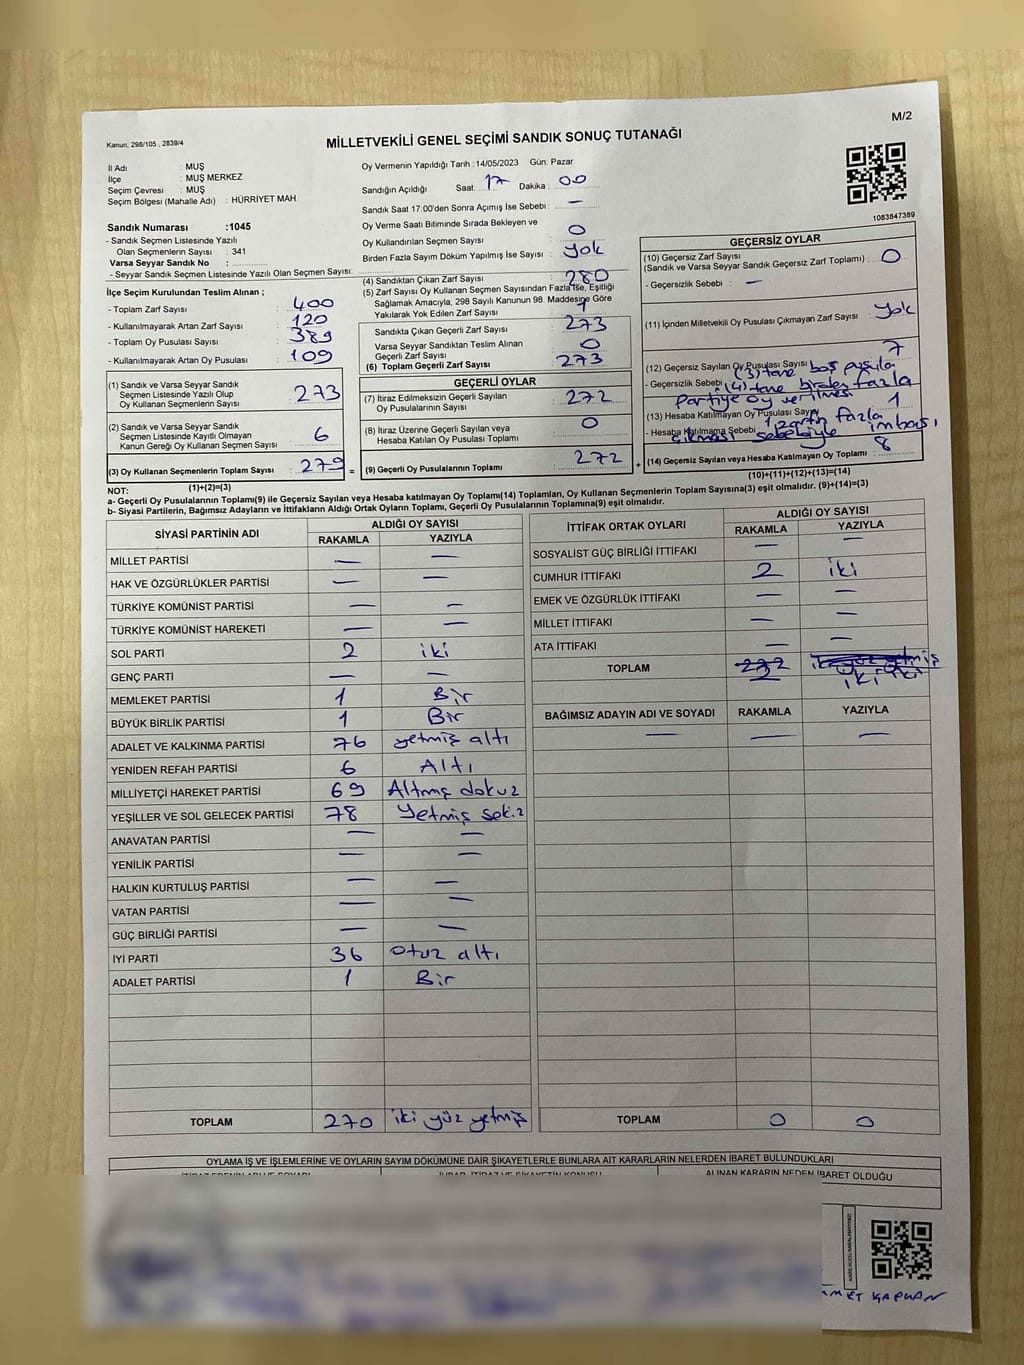 M/2
Kanun; 298/105 , 2839/4
MİLLETVEKİLİ GENEL SEÇİMİ SANDIK SONUÇ TUTANAĞI
İl Adı : MUŞ
İlçe : MUŞ MERKEZ
Seçim Çevresi : MUŞ
Seçim Bölgesi (Mahalle Adı) : HÜRRİYET MAH.
Sandık Numarası :1045
- Sandık Seçmen Listesinde Yazılı
Olan Seçmenlerin Sayısı : 341
Varsa Seyyar Sandık No :
- Seyyar Sandık Seçmen Listesinde Yazılı Olan Seçmen Sayısı:
Oy Vermenin Yapıldığı Tarih : 14/05/2023 Gün: Pazar
Sandığın Açıldığı Saat: 17 Dakika : 00
Sandık Saat 17:00'den Sonra Açımış İse Sebebi : —
Oy Verme Saati Bitiminde Sırada Bekleyen ve
Oy Kullandırılan Seçmen Sayısı : 0
Birden Fazla Sayım Döküm Yapılmış İse Sayısı : yok
1083847389
İlçe Seçim Kurulundan Teslim Alınan ;
- Toplam Zarf Sayısı : 400
- Kullanılmayarak Artan Zarf Sayısı : 120
- Toplam Oy Pusulası Sayısı : 389
- Kullanılmayarak Artan Oy Pusulası : 109
(1) Sandık ve Varsa Seyyar Sandık
Seçmen Listesinde Yazılı Olup
Oy Kullanan Seçmenlerin Sayısı : 273
(2) Sandık ve Varsa Seyyar Sandık
Seçmen Listesinde Kayıtlı Olmayan
Kanun Gereği Oy Kullanan Seçmen Sayısı : 6
(3) Oy Kullanan Seçmenlerin Toplam Sayısı : 279
(1)+(2)=(3)
(4) Sandıktan Çıkan Zarf Sayısı : 280
(5) Zarf Sayısı Oy Kullanan Seçmen Sayısından Fazla İse, Eşitliği
Sağlamak Amacıyla, 298 Sayılı Kanunun 98. Maddesine Göre
Yakılarak Yok Edilen Zarf Sayısı : 1
Sandıkta Çıkan Geçerli Zarf Sayısı : 273
Varsa Seyyar Sandıktan Teslim Alınan
Geçerli Zarf Sayısı : 0
(6) Toplam Geçerli Zarf Sayısı : 273
GEÇERLİ OYLAR
(7) İtiraz Edilmeksizin Geçerli Sayılan
Oy Pusulalarının Sayısı : 272
(8) İtiraz Üzerine Geçerli Sayılan veya
Hesaba Katılan Oy Pusulası Toplamı : 0
= (9) Geçerli Oy Pusulalarının Toplamı : 272 +
GEÇERSİZ OYLAR
(10) Geçersiz Zarf Sayısı
(Sandık ve Varsa Seyyar Sandık Geçersiz Zarf Toplamı) : 0
- Geçersizlik Sebebi : —
(11) İçinden Milletvekili Oy Pusulası Çıkmayan Zarf Sayısı : yok
(12) Geçersiz Sayılan Oy Pusulası Sayısı : 7
- Geçersizlik Sebebi : (3) tane boş pusula
(4) tane birden fazla
partiye oy verilmesi
(13) Hesaba Katılmayan Oy Pusulası Sayısı 1
- Hesaba Katılmama Sebebi : 1 zarfın fazla
çıkması sebebiyle imhası
(14) Geçersiz Sayılan veya Hesaba Katılmayan Oy Toplamı : 8
(10)+(11)+(12)+(13)=(14)
NOT:
a- Geçerli Oy Pusulalarının Toplamı(9) ile Geçersiz Sayılan veya Hesaba katılmayan Oy Toplamı(14) Toplamları, Oy Kullanan Seçmenlerin Toplam Sayısına(3) eşit olmalıdır. (9)+(14)=(3)
b- Siyasi Partilerin, Bağımsız Adayların ve İttifakların Aldığı Ortak Oyların Toplamı, Geçerli Oy Pusulalarının Toplamına(9) eşit olmalıdır.
SİYASİ PARTİNİN ADI ALDIĞI OY SAYISI
RAKAMLA YAZIYLA
MİLLET PARTİSİ — —
HAK VE ÖZGÜRLÜKLER PARTİSİ — —
TÜRKİYE KOMÜNİST PARTİSİ — —
TÜRKİYE KOMÜNİST HAREKETİ — —
SOL PARTİ 2 iki
GENÇ PARTİ — —
MEMLEKET PARTİSİ 1 Bir
BÜYÜK BİRLİK PARTİSİ 1 Bir
ADALET VE KALKINMA PARTİSİ 76 yetmiş altı
YENİDEN REFAH PARTİSİ 6 Altı
MİLLİYETÇİ HAREKET PARTİSİ 69 Altmış dokuz
YEŞİLLER VE SOL GELECEK PARTİSİ 78 Yetmiş sekiz
ANAVATAN PARTİSİ — —
YENİLİK PARTİSİ — —
HALKIN KURTULUŞ PARTİSİ — —
VATAN PARTİSİ — —
GÜÇ BİRLİĞİ PARTİSİ — —
İYİ PARTİ 36 otuz altı
ADALET PARTİSİ 1 Bir
TOPLAM 270 iki yüz yetmiş
İTTİFAK ORTAK OYLARI ALDIĞI OY SAYISI
RAKAMLA YAZIYLA
SOSYALİST GÜÇ BİRLİĞİ İTTİFAKI — —
CUMHUR İTTİFAKI 2 iki
EMEK VE ÖZGÜRLÜK İTTİFAKI — —
MİLLET İTTİFAKI — —
ATA İTTİFAKI — —
TOPLAM 2 iki iki
BAĞIMSIZ ADAYIN ADI VE SOYADI RAKAMLA YAZIYLA
— — —
TOPLAM 0 0
OYLAMA İŞ VE İŞLEMLERİNE VE OYLARIN SAYIM DÖKÜMÜNE DAİR ŞİKAYETLERLE BUNLARA AİT KARARLARIN NELERDEN İBARET BULUNDUKLARI
ALINAN KARARIN NEDEN İBARET OLDUĞU
KAPLAN